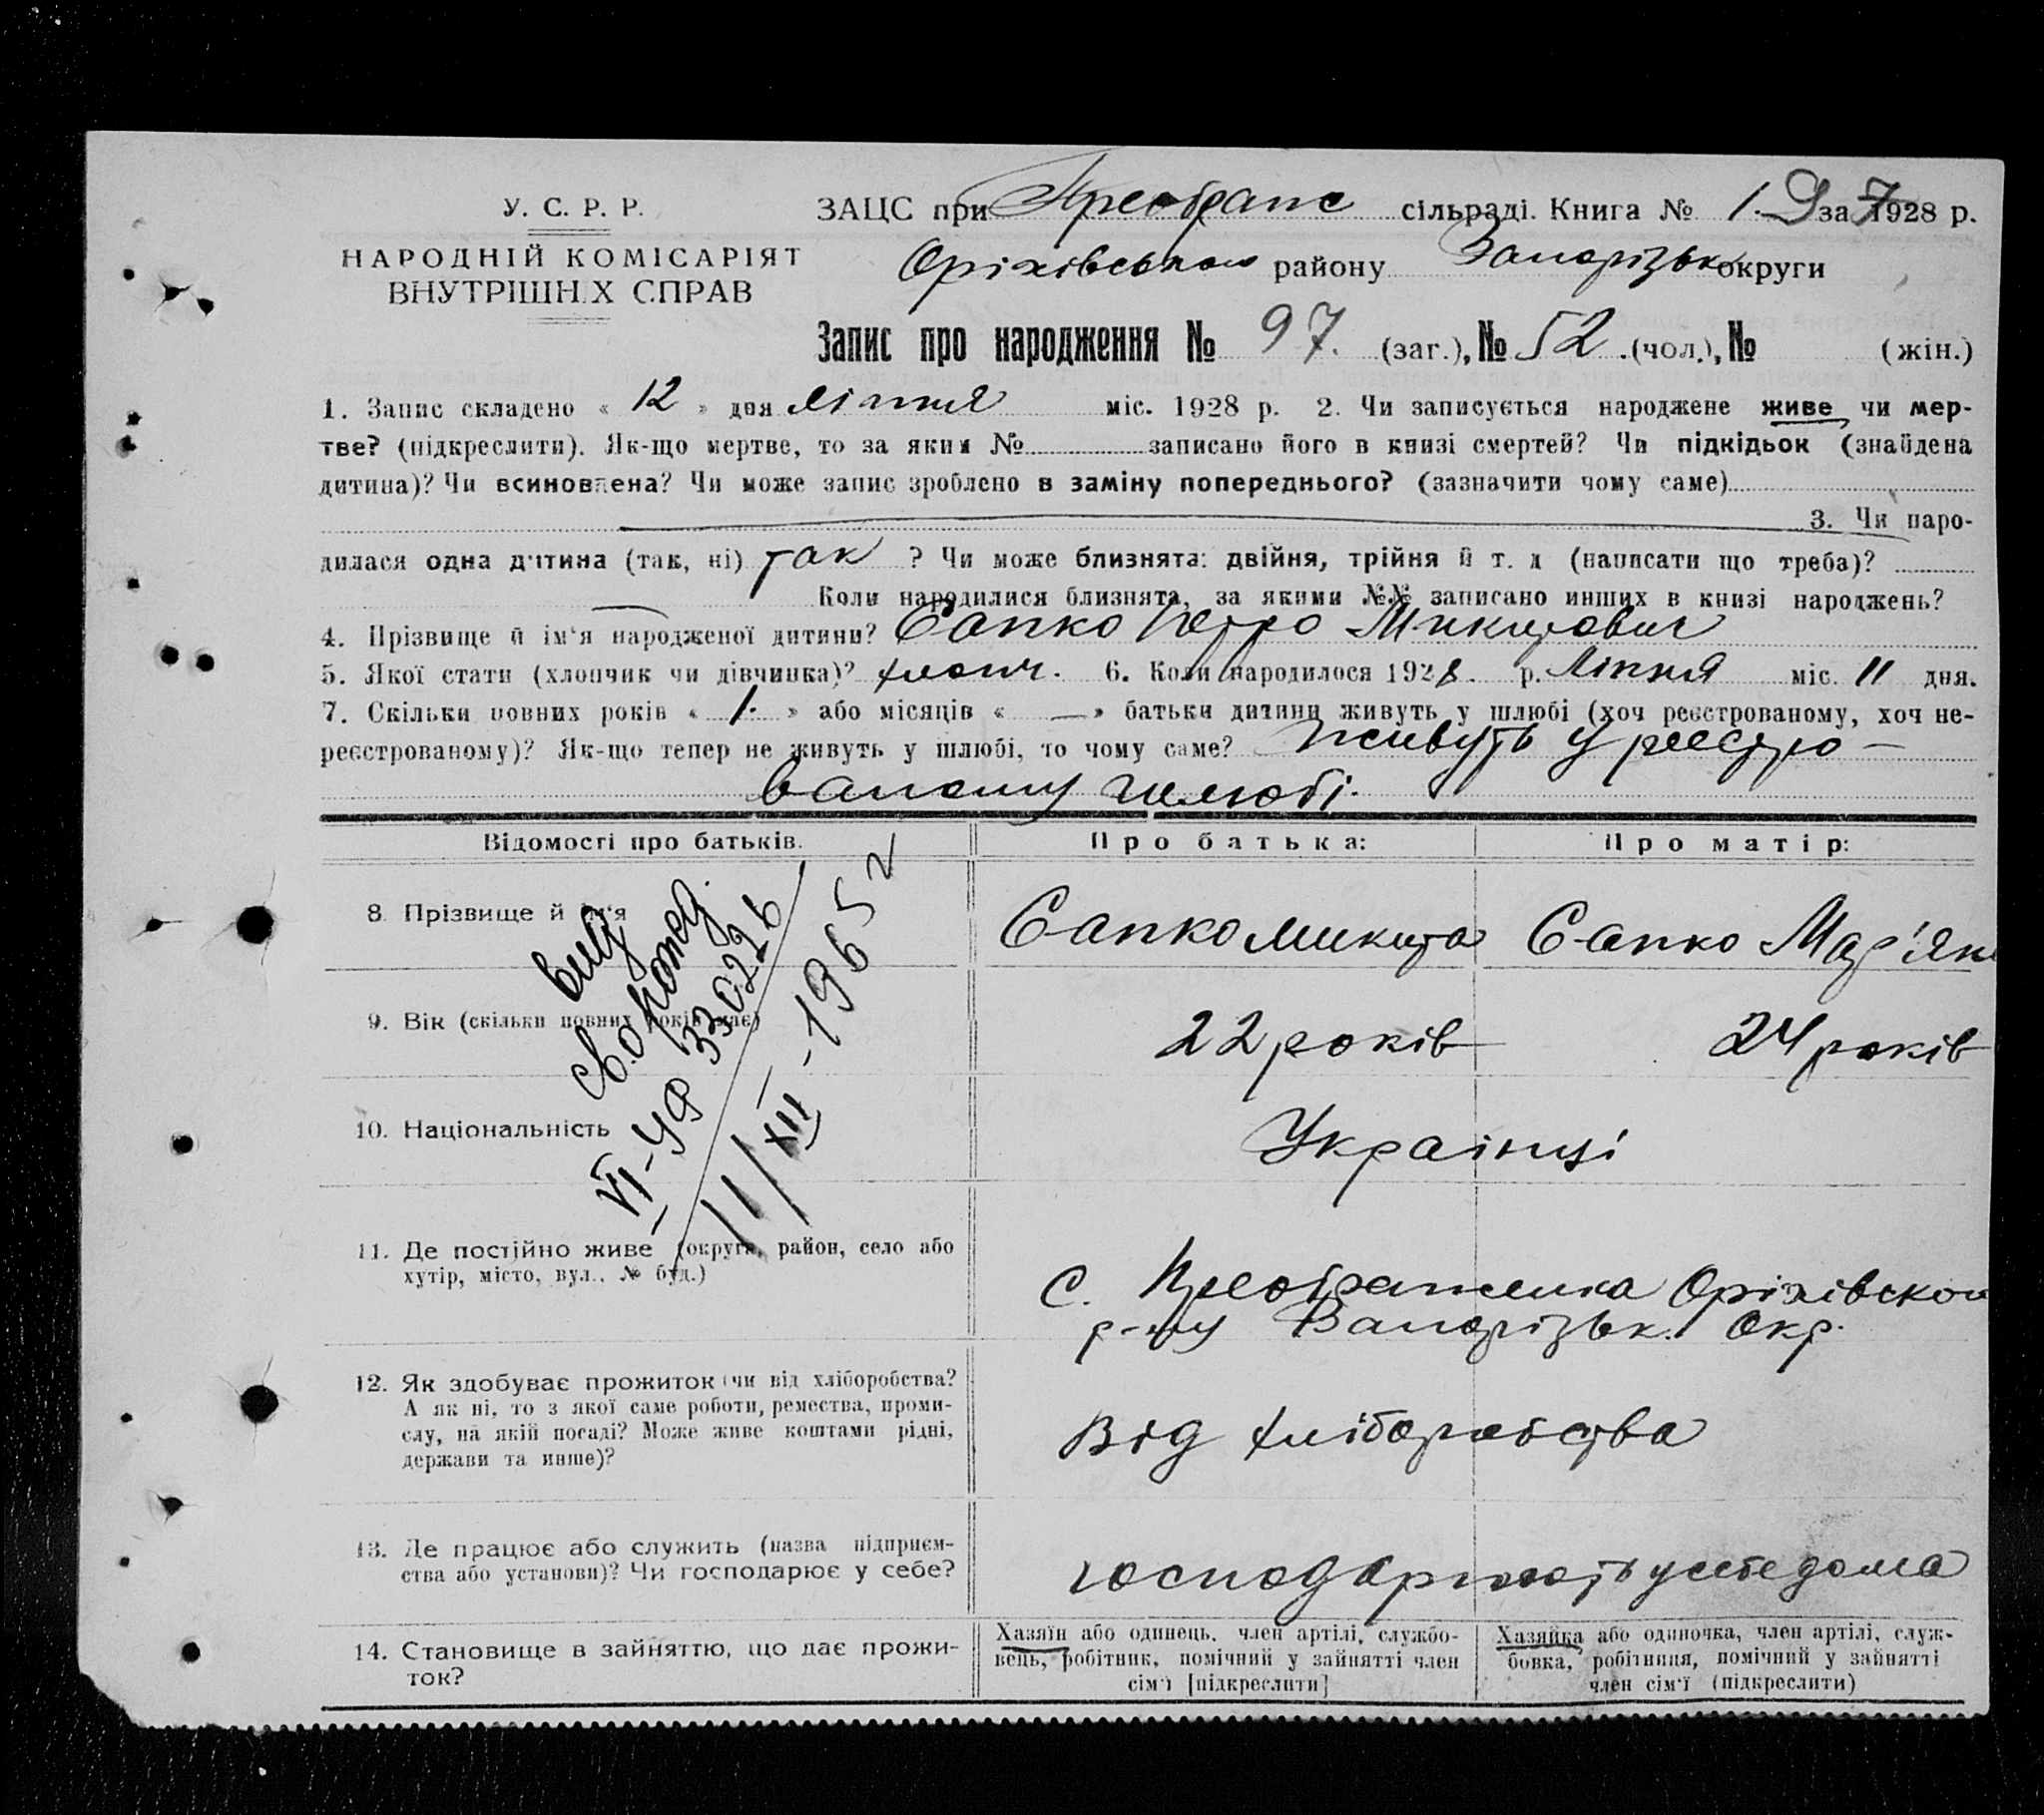 У. С. Р. Р.
НАРОДНІЙ КОМІСАРІЯТ
ВНУТРІШНІХ СПРАВ
ЗАЦС при Преображ сільраді. Книга № 1. за 1928 р.
Оріхівського району Запорізьк округи
Запис про народження № 97. (заг.), № 52 (чол.), № (жін.)
1. Запис складено « 12 » дня Ліпня міс. 1928 р. 2. Чи записується народжене живе чи мер-
тве? (підкреслити). Як-що мертве, то за яким № записано його в книзі смертей? Чи підкідьок (знайдена
дитина)? Чи всиновлена? Чи може запис зроблено в заміну попереднього? (зазначити чому саме)
3. Чи наро-
дилася одна дитина (так, ні) так ? Чи може близнята: двійня, трійня й т. д (написати що треба)?
— Коли народилися близнята, за якими №№ записано инших в книзі народжень?
4. Прізвище й ім'я народженої дитини? Сапко Петро Микитович
5. Якої стати (хлопчик чи дівчинка)? хлопч. 6. Коли народилося 1928. р. Ліпня міс. 11 дня.
7. Скільки повних років « 1. » або місяців « — » батьки дитини живуть у шлюбі (хоч реєстрованому, хоч не-
реєстрованому)? Як-що тепер не живуть у шлюбі, то чому саме? живуть у реєстро-
ваному шлюбі.
Відомості про батьків.
Про батька:
Про матір:
8. Прізвище й ім'я
Сапко Микита
Сапко Мар'яна
9. Вік (скільки повних років має)
22 років
24 років
10. Національність
Українці
11. Де постійно живе (округа, район, село або
хутір, місто, вул., № буд.)
с. Преображенка Оріхівської
р-ну Запорізьк. Окр.
12. Як здобуває прожиток (чи від хліборобства?
А як ні, то з якої саме роботи, ремества, проми-
слу, на якій посаді? Може живе коштами рідні,
держави та инше)?
Від хліборобства
13. Де працює або служить (назва підприєм-
ства або установи)? Чи господарює у себе?
господарюють у себе дома
14. Становище в зайняттю, що дає прожи-
ток?
Хазяїн або одинець, член артілі, службо-
вець, робітник, помічний у зайнятті член
сім'ї [підкреслити]
Хазяйка або одиночка, член артілі, служ-
бовка, робітниця, помічний у зайнятті
член сім'ї (підкреслити)
вид
св. о рожд.
VI-УФ 330226
11/XII-1965 г